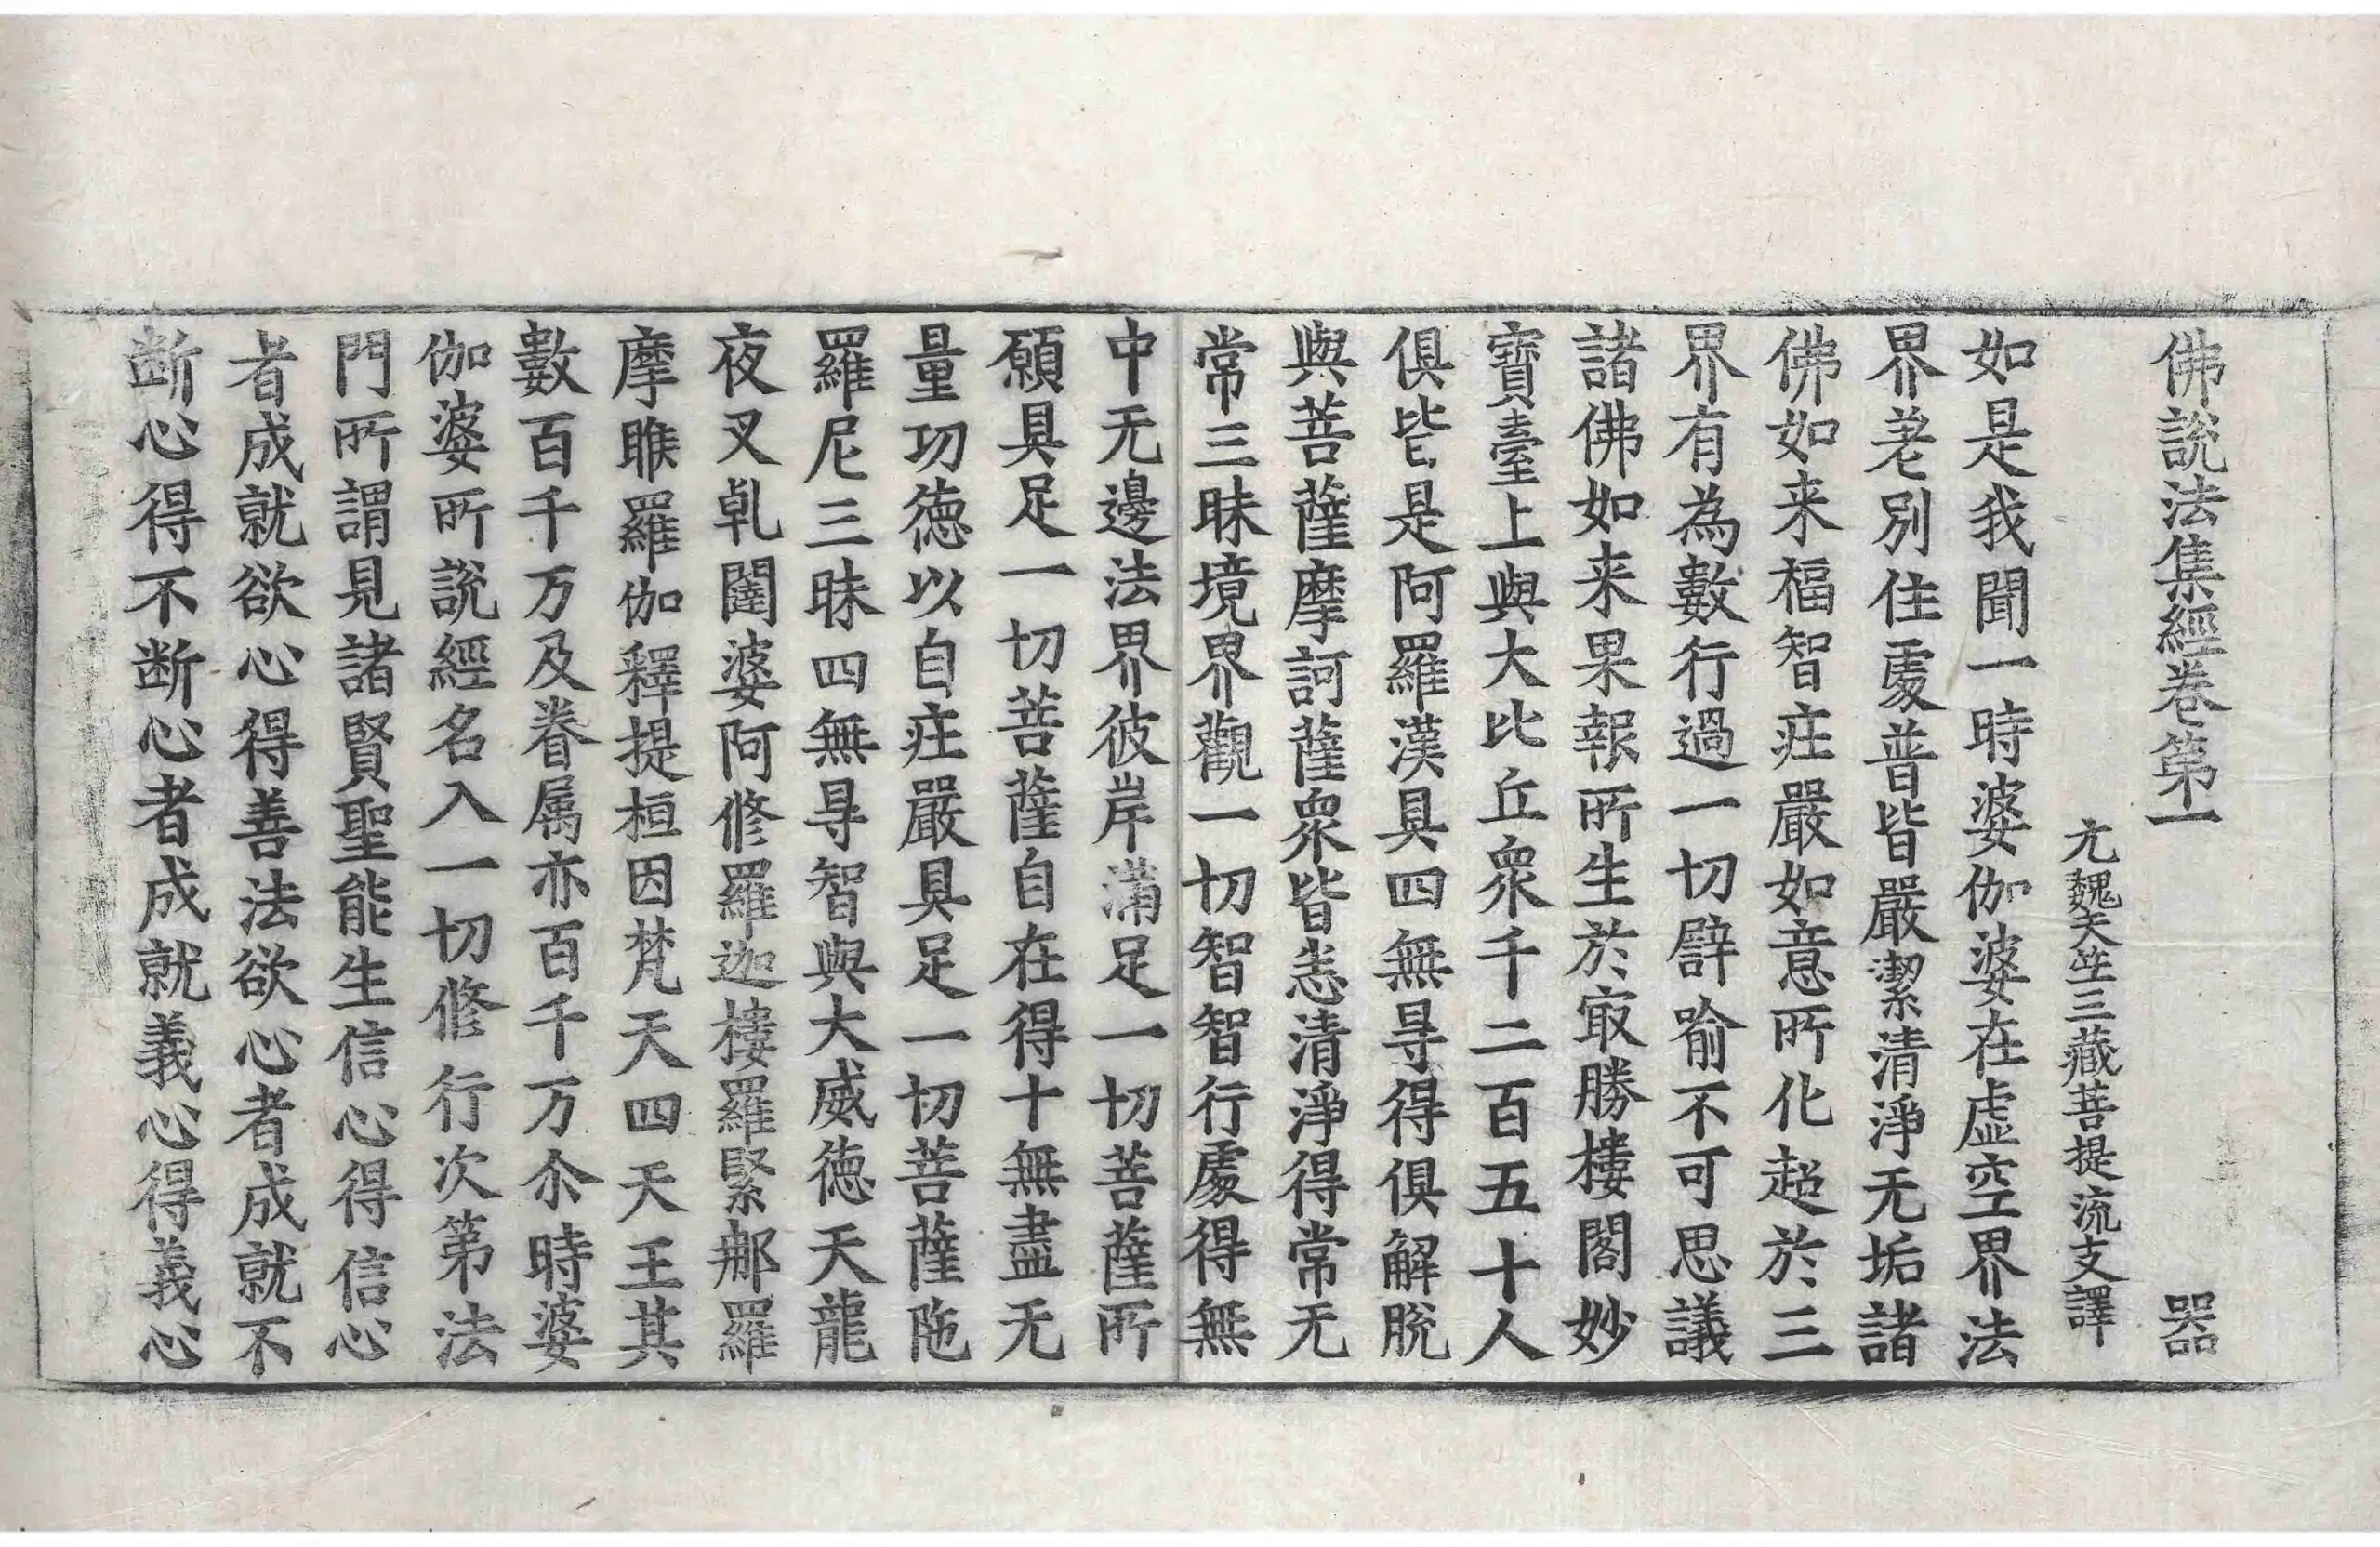 佛說法集經卷第一 器
元魏天竺三藏菩提流支譯
如是我聞一時婆伽婆在虛空界法
界差別住處普皆嚴潔清淨无垢諸
佛如来福智庄嚴如意所化超於三
界有為數行過一切譬喻不可思議
諸佛如来果報所生於㝡勝樓閣妙
寶臺上與大比丘眾千二百五十人
俱皆是阿羅漢具四無㝵得俱解脫
與菩薩摩訶薩眾皆悉清淨得常无
常三昧境界觀一切智智行處得無
中无邊法界彼岸滿足一切菩薩所
願具足一切菩薩自在得十無盡无
量功德以自庄嚴具足一切菩薩陁
羅尼三昧四無㝵智與大威德天龍
夜叉乹闥婆阿修羅迦樓羅緊那羅
摩睺羅伽釋提桓因梵天四天王其
數百千万及眷属亦百千万尒時婆
伽婆所說經名入一切修行次第法
門所謂見諸賢聖能生信心得信心
者成就欲心得善法欲心者成就不
断心得不断心者成就義心得義心